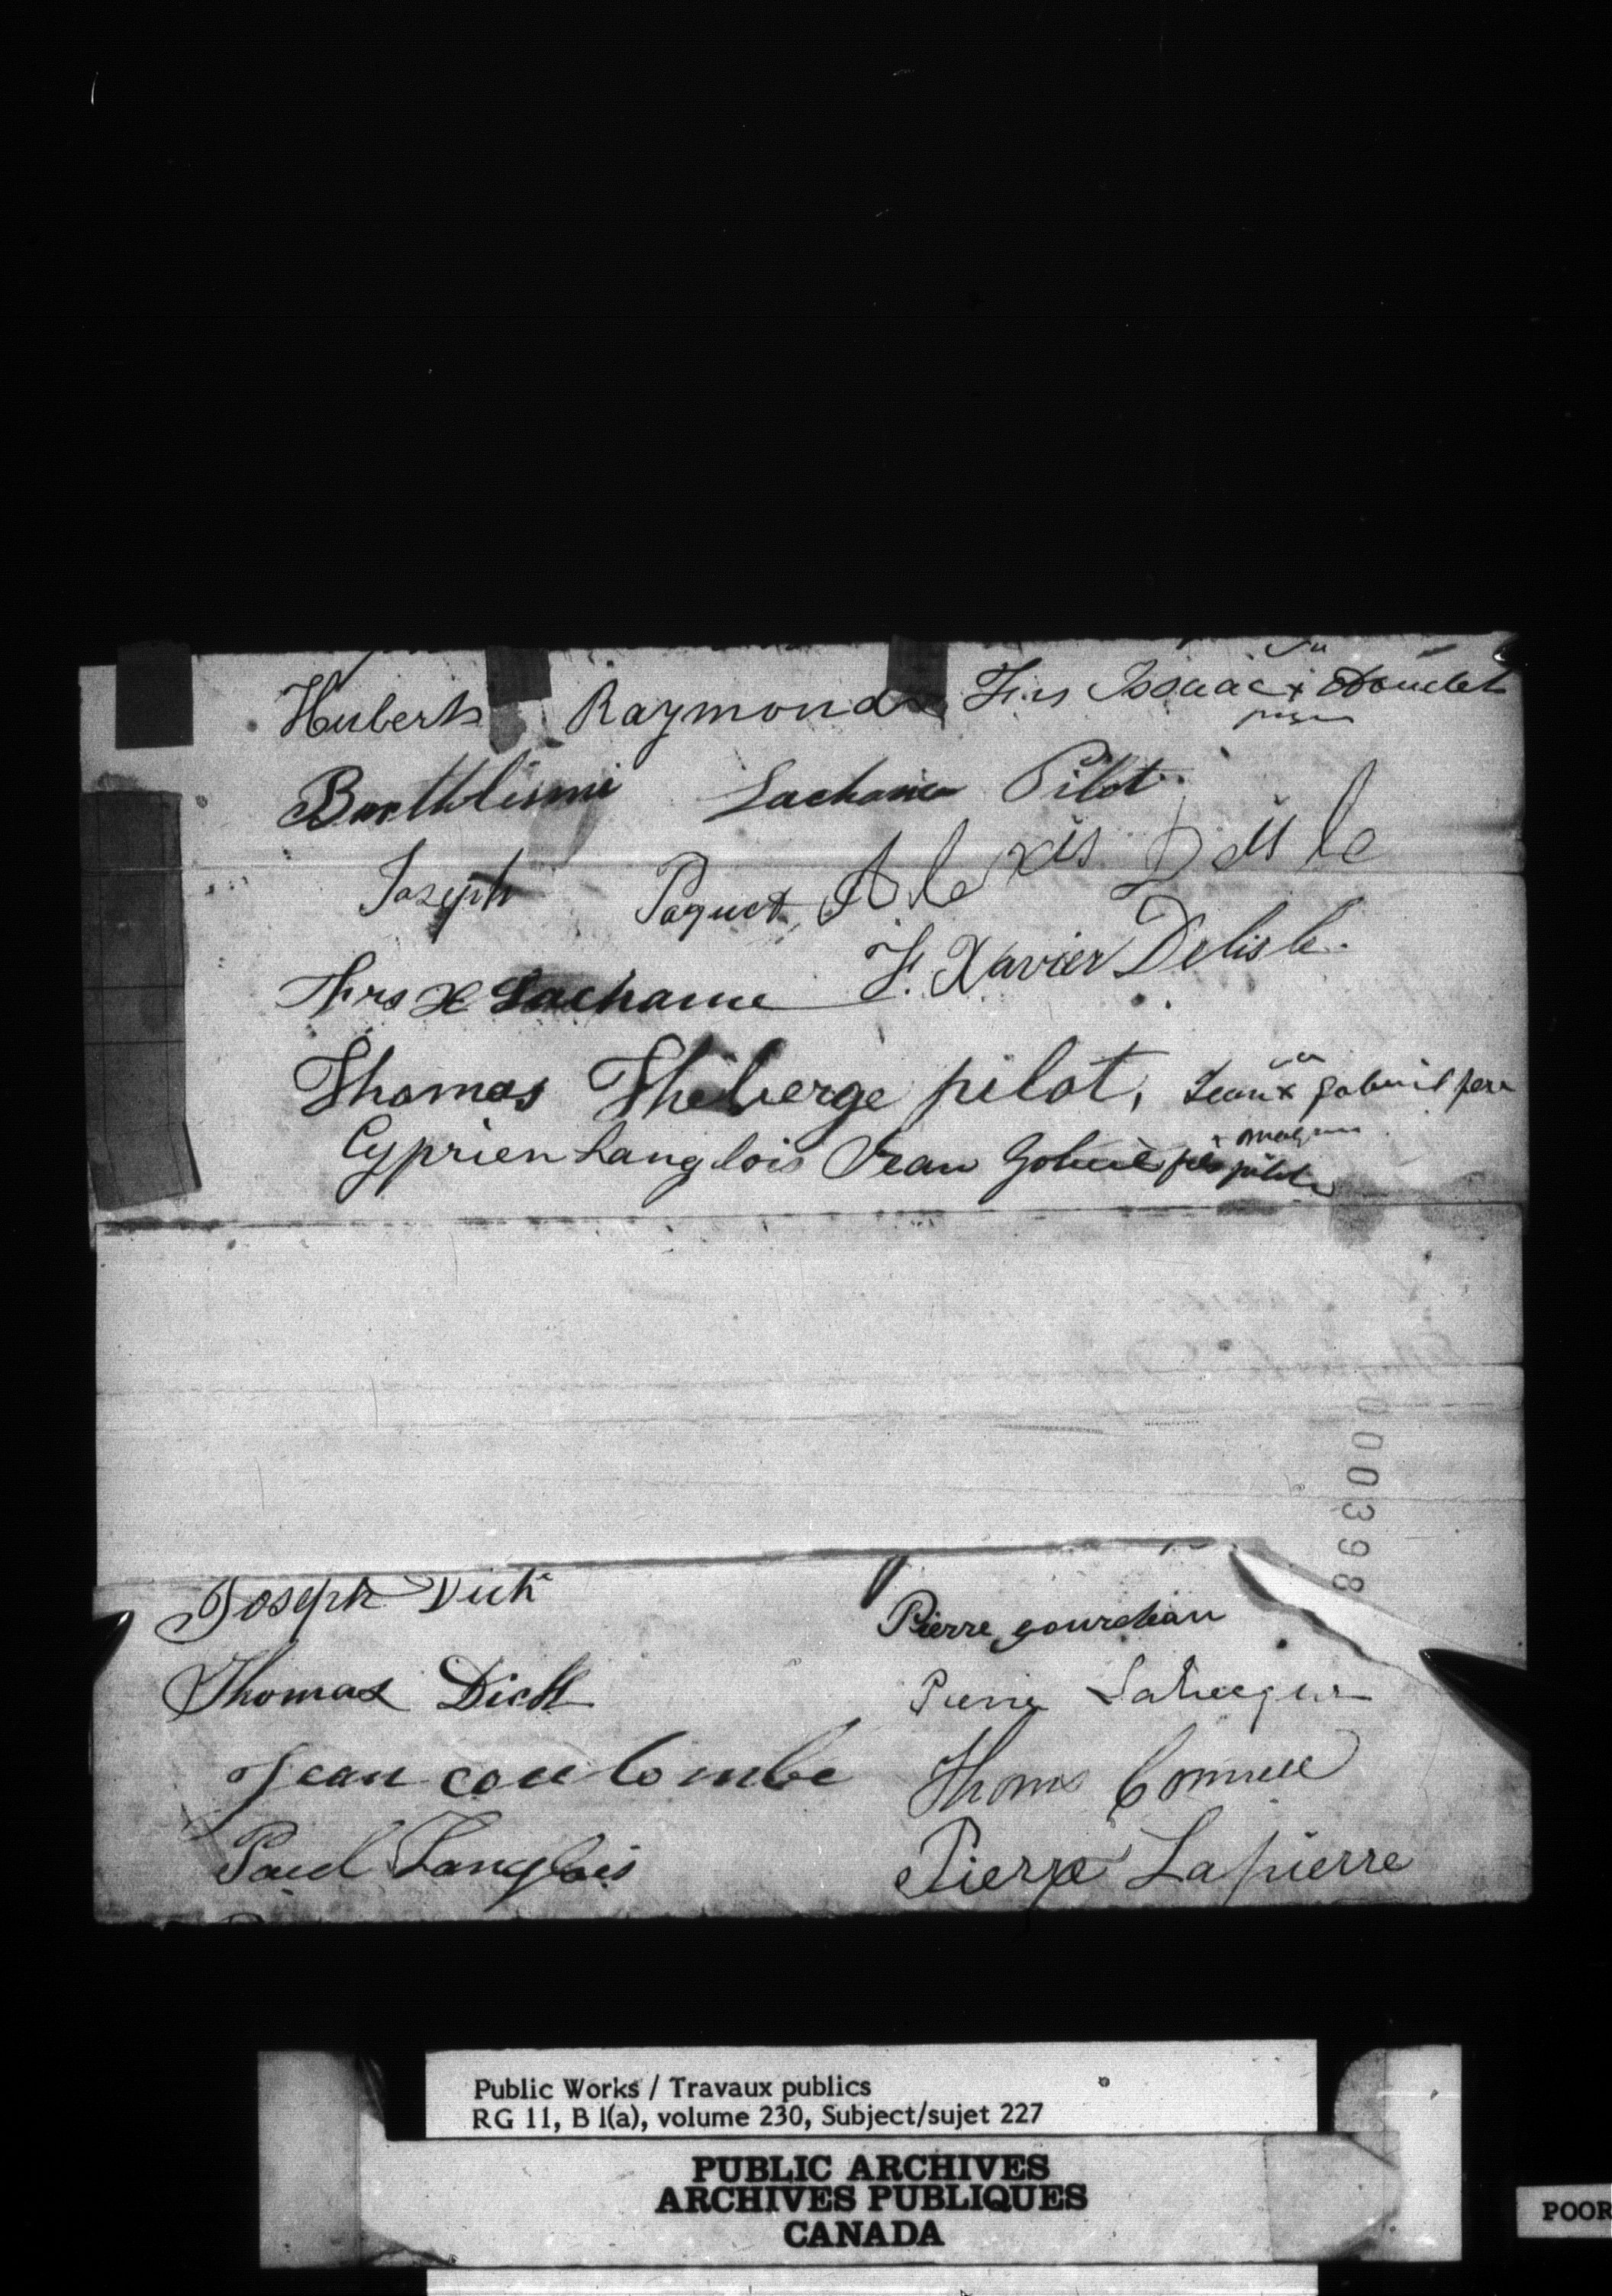 Hubert Raymond Frs Isaac x Doudet
Barthlemi Lachance Pilot
Joseph Paquet Alexis Delisle
Frs X Lachance F. Xavier Delisle
Thomas Theberge pilot, Jean x Gobeil pere
Cyprien Langlois Jean Gobeil fils pilote
000398
Joseph Dick Pierre gourdeau
Thomas Dick Pierre
Jean coulombe Thoms Connell
Paul Langlois Pierre Lapierre
Public Works / Travaux publics
RG 11, B 1(a), volume 230, Subject/sujet 227
PUBLIC ARCHIVES
ARCHIVES PUBLIQUES
CANADA
POOR